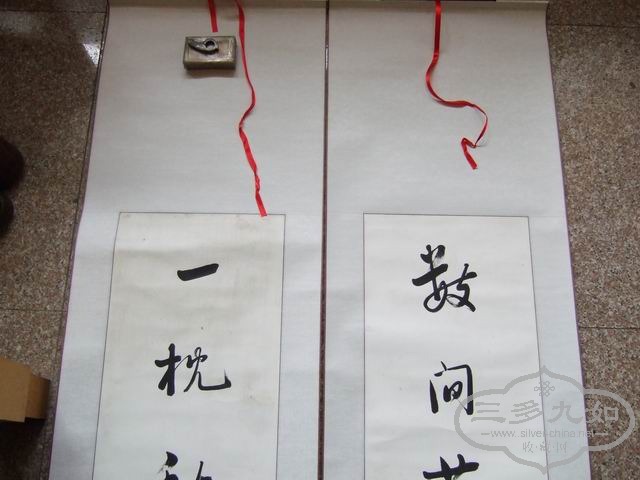 数间茅
一枕
三多九如
www.silverchina.net
收藏网